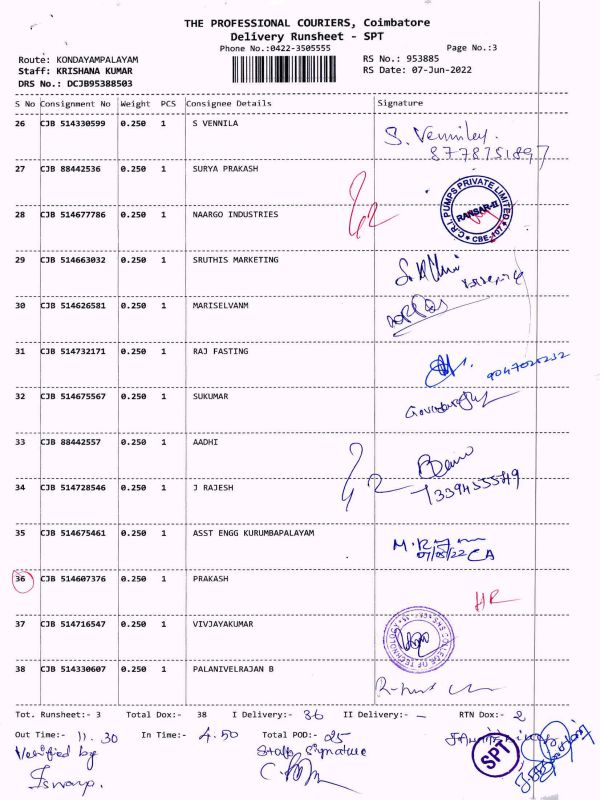 THE PROFESSIONAL COURIERS, Coimbatore
Delivery Runsheet - SPT
Phone No.:0422-3505555
Page No.:3
Route: KONDAYAMPALAYAM
RS No.: 953885
Staff: KRISHANA KUMAR
RS Date: 07-Jun-2022
DRS No.: DCJB95388503
S No Consignment No Weight PCS Consignee Details Signature
26 CJB 514330599 0.250 1 S VENNILA
27 CJB 88442536 0.250 1 SURYA PRAKASH
C.R.I. PUMPS PRIVATE LIMITED
28 CJB 514677786 0.250 1 NAARGO INDUSTRIES
29 CJB 514663032 0.250 1 SRUTHIS MARKETING
30 CJB 514626581 0.250 1 MARISELVANM
31 CJB 514732171 0.250 1 RAJ FASTING
32 CJB 514675567 0.250 1 SUKUMAR
33 CJB 88442557 0.250 1 AADHI
34 CJB 514728546 0.250 1 J RAJESH
35 CJB 514675461 0.250 1 ASST ENGG KURUMBAPALAYAM
36 CJB 514607376 0.250 1 PRAKASH
HR
37 CJB 514716547 0.250 1 VIVJAYAKUMAR
38 CJB 514330607 0.250 1 PALANIVELRAJAN B
Tot. Runsheet:- 3 Total Dox:- 38 I Delivery:- 36 II Delivery:- - RTN Dox:- 2
Out Time:- 11.30 In Time:- 4.50 Total POD:- 25
Verified by Staff Signature
SPT